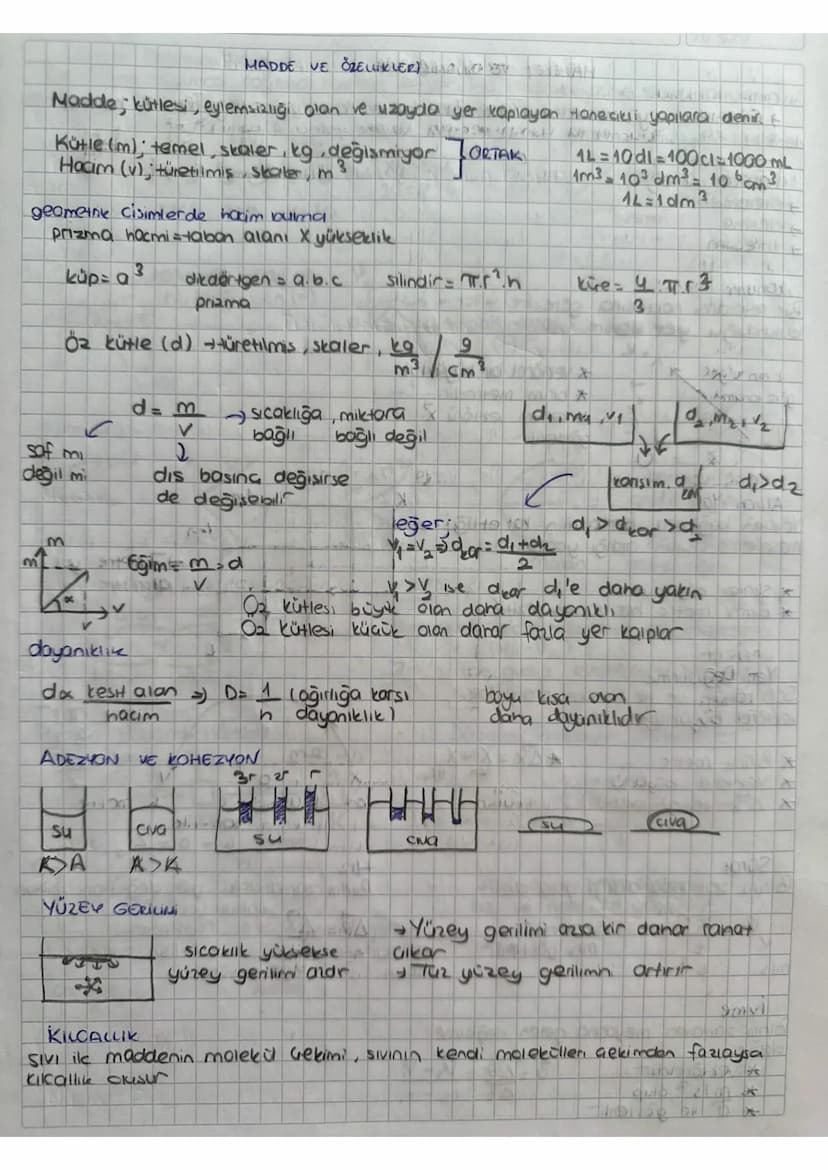 MADDE VE ÖZELLİKLERİ
Madde; kütlesi, eylemsizliği olan ve uzayda yer kaplayan tanecikli yapılara denir.
Kütle (m); temel, skaler, kg, değişmiyor } ORTAK
Hacim (v); türetilmiş, skaler, m³
1L = 10dl = 100cl = 1000 mL
1m³ = 10³ dm³ = 10⁶ cm³
1L = 1dm³
geometrik cisimlerde hacim bulma
prizma hacmi = taban alanı X yükseklik
küp = a³ dikdörtgen prizma = a.b.c silindir = π.r².h küre = 4/3 .π.r³
Öz kütle (d) → türetilmiş, skaler, kg/m³ / g/cm³
d = m/v → sıcaklığa bağlı, miktara bağlı değil
saf mı değil mi
dış basınç değişirse
de değişebilir
d₁, m₁, v₁ d₂, m₂, v₂
karışım. d d₁>d₂
d₁ > dkar > d₂
eğer;
v₁ = v₂ ⇒ dkar = d₁+d₂/2
v₁ > v₂ ise dkar d₁'e daha yakın
m
m
α
v
v
Eğim = m/v = d
Öz kütlesi büyük olan daha dayanıklı
Öz kütlesi küçük olan daha fazla yer kaplar
dayanıklılık
dα kesit alan/hacim ⇒ D = 1/h (ağırlığa karşı dayanıklık)
boyu kısa olan
daha dayanıklıdır
ADEZYON VE KOHEZYON
3r 2r r
su civa su civa su civa
K>A A>K
YÜZEY GERİLİMİ
sıcaklık yüksekse
yüzey gerilimi azdır
→ Yüzey gerilimi azsa kir daha rahat
çıkar
→ Tuz yüzey gerilimini artırır
KILCALLIK
sıvı ile maddenin molekül çekimi, sıvının kendi molekülleri çekimden fazlaysa
kılcallık oluşur